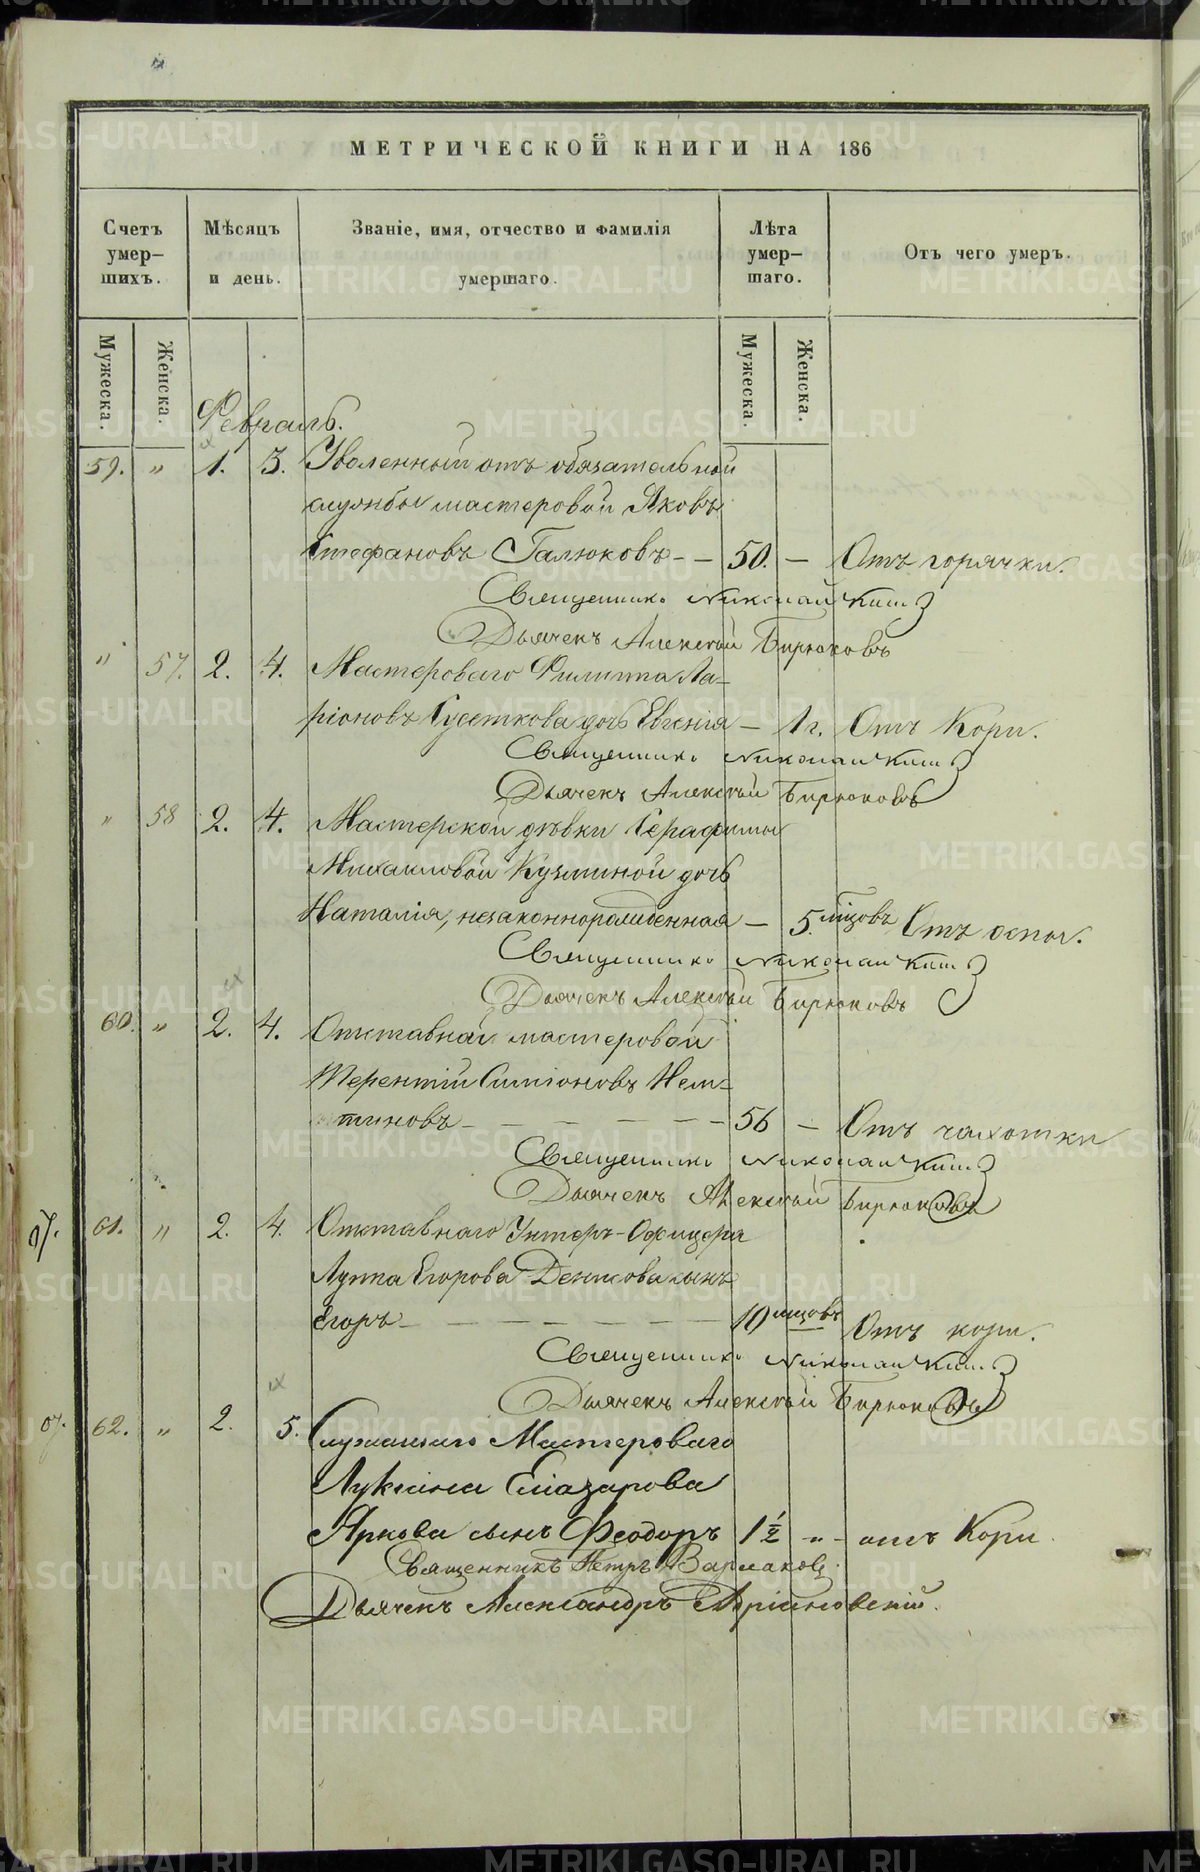 МЕТРИЧЕСКОЙ КНИГИ НА 186
Счетъ умер-шихъ.
Мѣсяцъ и день.
Званіе, имя, отчество и фамилія умершаго.
Лѣта умер-шаго.
Отъ чего умеръ.
Мужеска. Женска. Мужеска. Женска.
Февраль.
59. „ 1. 3. Уволенный отъ обязательной
службы мастеровой Яковъ
Стефановъ Галюковъ - - 50. - Отъ горячки.
Священникъ Николай
Дьячекъ Алексѣй Бирюковъ
„ 57. 2. 4. Мастероваго Филиппа Ла-
ріонова Гусеткова дочь Евгенія - 1 г. Отъ Кори.
Священникъ Николай
Дьячекъ Алексѣй Бирюковъ
„ 58 2. 4. Мастерской дѣвки Серафимы
Михаиловой Кузминой дочь
Наталія, незаконнорожденная - 5. мѣсцовъ Отъ оспы.
Священникъ Николай
Дьячекъ Алексѣй Бирюковъ
60. „ 2. 4. Отставной мастеровой
Терентій Симіоновъ Нем-
тиновъ - - - - - - 56 - Отъ чахотки
Священникъ Николай
Дьячекъ Алексѣй Бирюковъ
61. „ 2. 4. Отставнаго Унтеръ-Офицера
Луппа Егорова Денисова сынъ
Егоръ - - - - - - 10 мѣсцовъ Отъ кори.
Священникъ Николай
Дьячекъ Алексѣй Бирюковъ
62. „ 2. 5. Служащаго Мастероваго
Лукіяна Елиазарова
Яркова сынъ Феодоръ 1½ „ - отъ Кори
Священникъ Петръ
Дьячекъ Александръ
METRIKI.GASO-URAL.RU